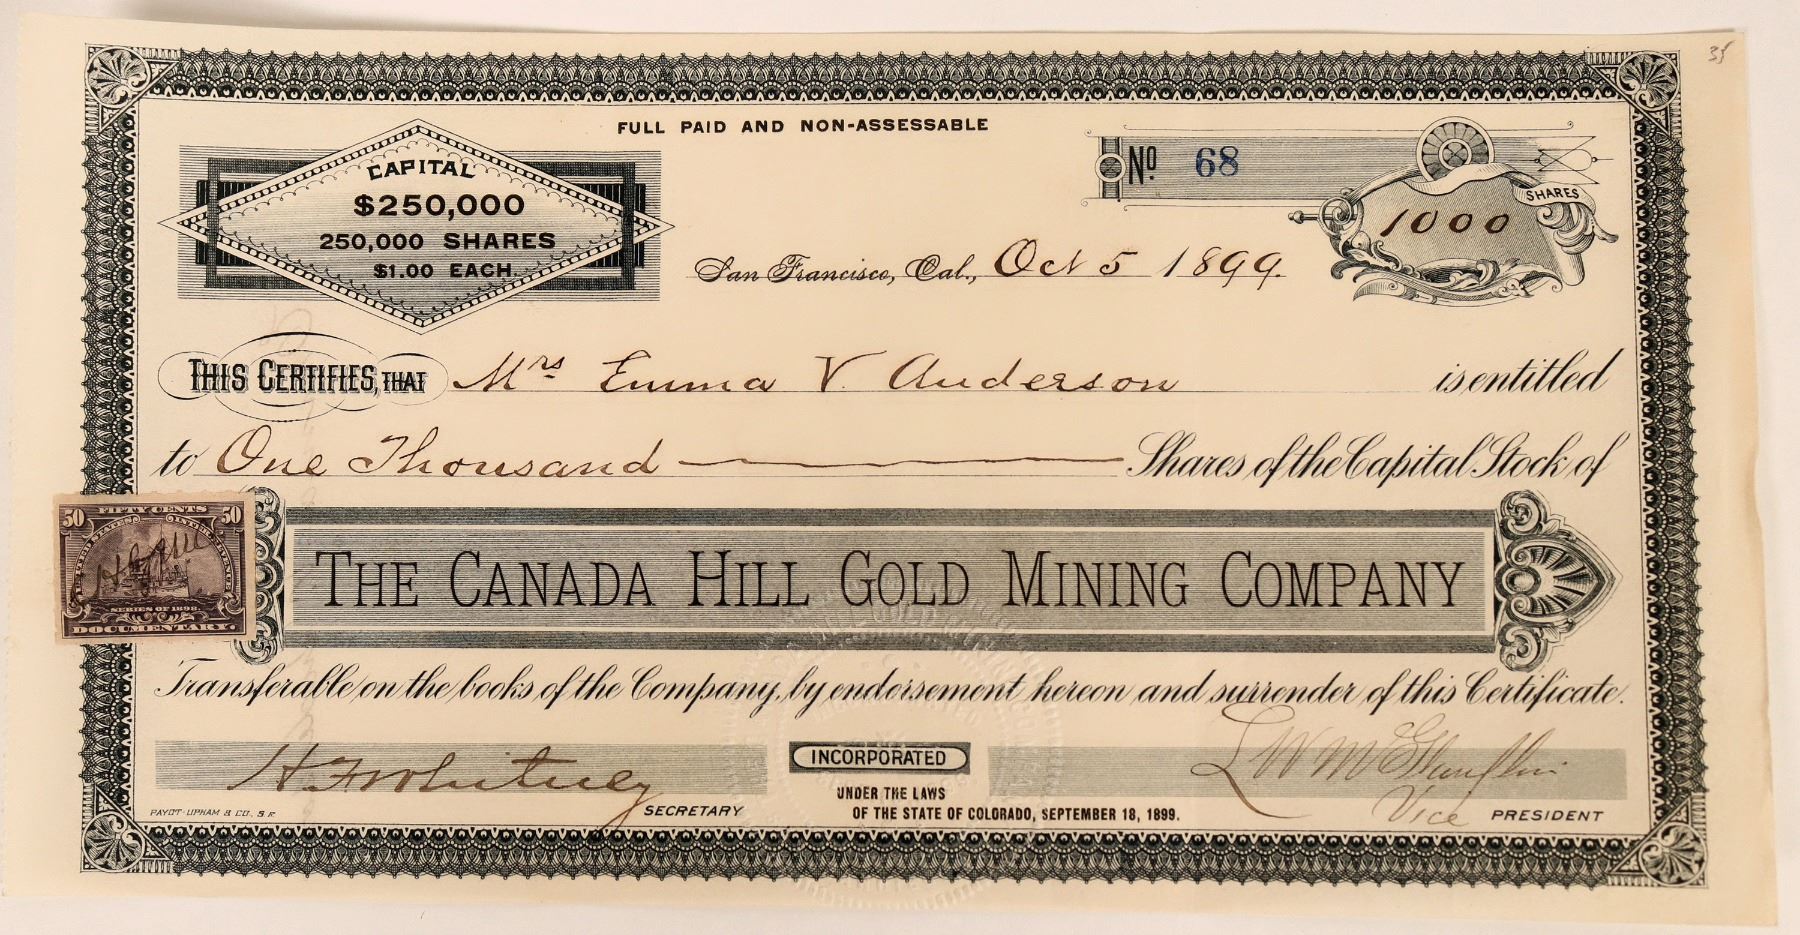 35
FULL PAID AND NON-ASSESSABLE
CAPITAL
$250,000
250,000 SHARES
$1.00 EACH.
Nº 68
SHARES
1000
San Francisco, Cal., Oct 5 1899.
THIS CERTIFIES, THAT Mrs Emma V. Anderson is entitled
to One Thousand Shares of the Capital Stock of
50 FIFTY CENTS 50
UNITED STATES INTER. REVENUE
SERIES OF 1898.
DOCUMENTARY.
THE CANADA HILL GOLD MINING COMPANY
Transferable on the books of the Company, by endorsement hereon and surrender of this Certificate.
H F Whitney
SECRETARY
PAYOT-UPHAM & CO., S F.
INCORPORATED
UNDER THE LAWS
OF THE STATE OF COLORADO, SEPTEMBER 18, 1899.
L W McGlauflin
Vice PRESIDENT